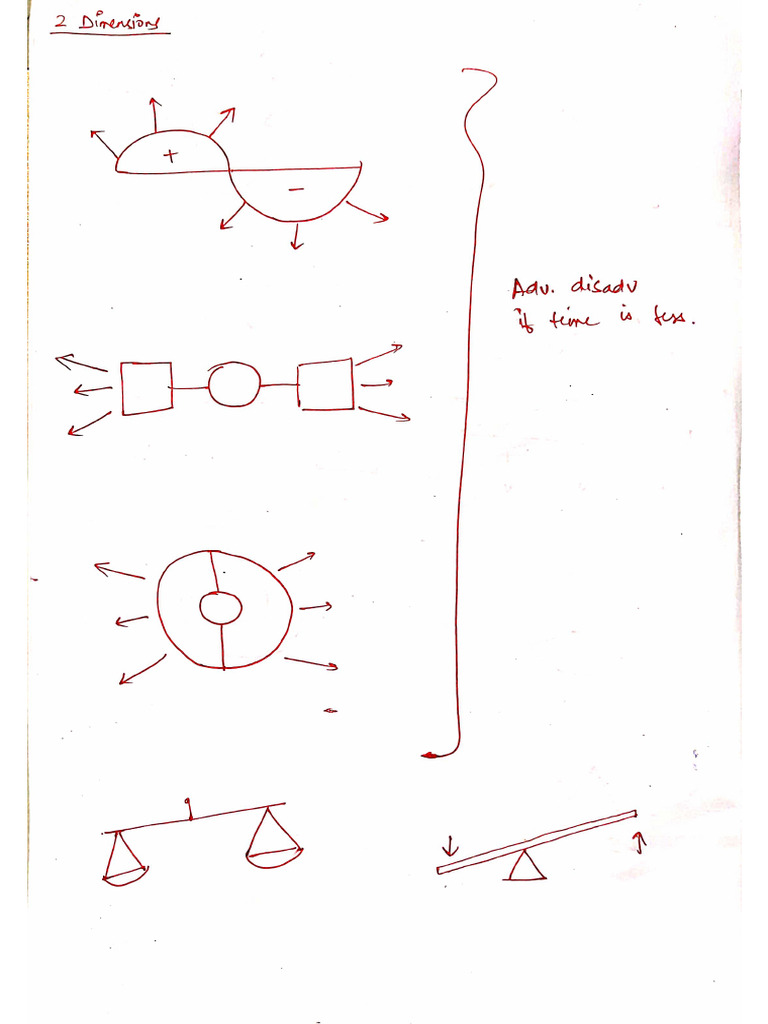 2 Dimensions
+
-
Adv. disadv
if time is less.